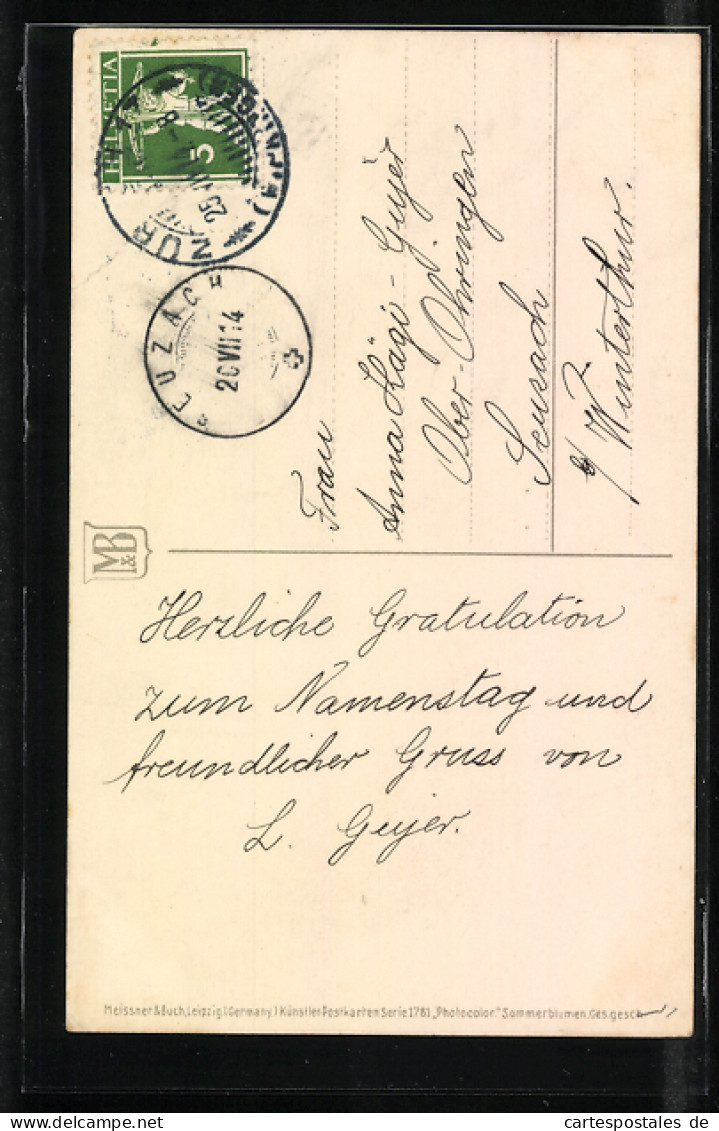 HELVETIA
5
ZÜR
25 VII
SEUZACH
26 VII 14
Frau
Anna Kägi-Geyer
Ober-Ohringen
Seuzach
b/ Winterthur.
M&B
Herzliche Gratulation
zum Namenstag und
freundlicher Gruss von
L. Geyer.
Meissner & Buch, Leipzig (Germany) Künstler Postkarten Serie 1781 „Photocolor.“ Sommerblumen, Ges. gesch.
www.cartespostales.de